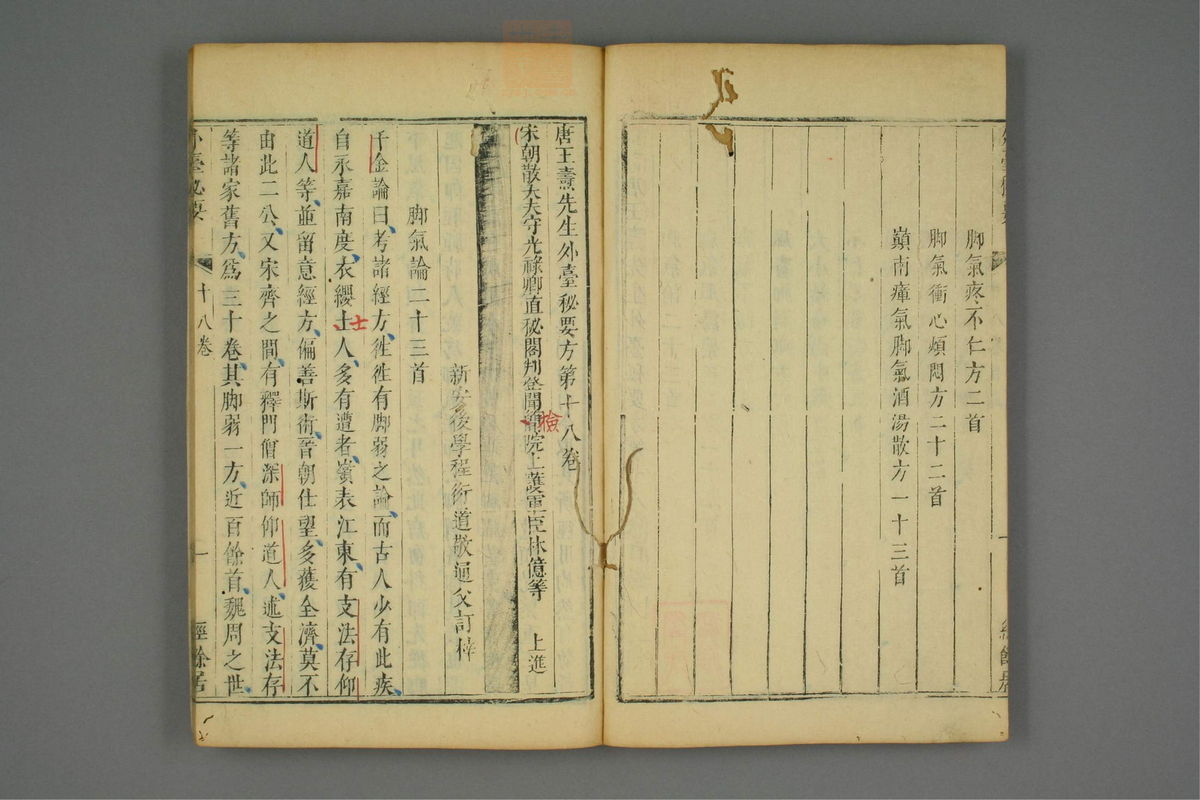 脚氣疼不仁方二首
脚氣衝心煩悶方二十二首
嶺南瘴氣脚氣酒湯散方一十三首
唐王燾先生外臺秘要方第十八卷
宋朝散大夫守光祿卿直秘閣判登聞簡院上護軍臣林億等 上進
檢
新安後學程衍道敬通父訂梓
脚氣論二十三首
千金論曰考諸經方徃徃有脚弱之論而古人少有此疾
自永嘉南度衣纓土人多有遭者嶺表江東有支法存仰
士
道人等並留意經方偏善斯術晉朝仕望多獲全濟莫不
由此二公又宋齊之間有釋門僧深師仰道人述支法存
等諸家舊方為三十卷其脚弱一方近百餘首魏周之世
外臺秘要 十八卷 一 經餘居